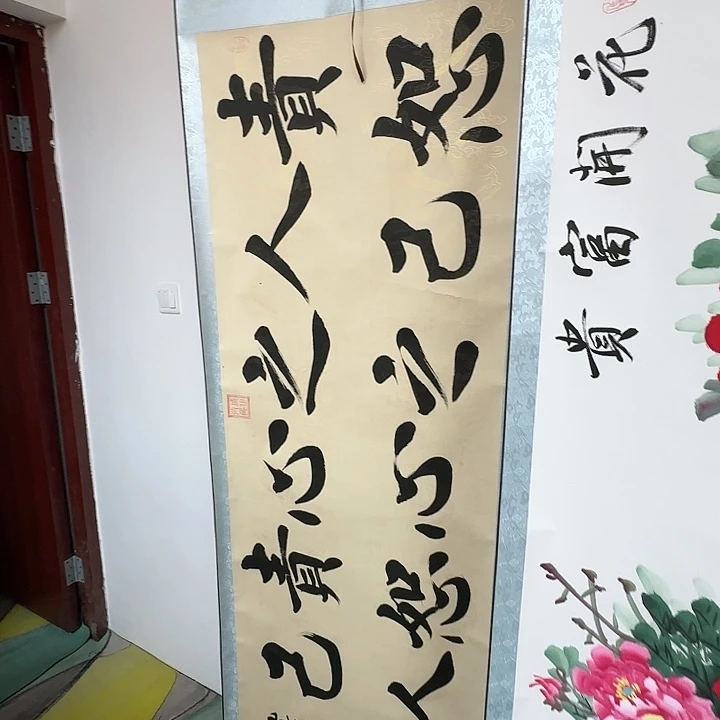 花開富貴
恕己之心恕人
責人之心責己